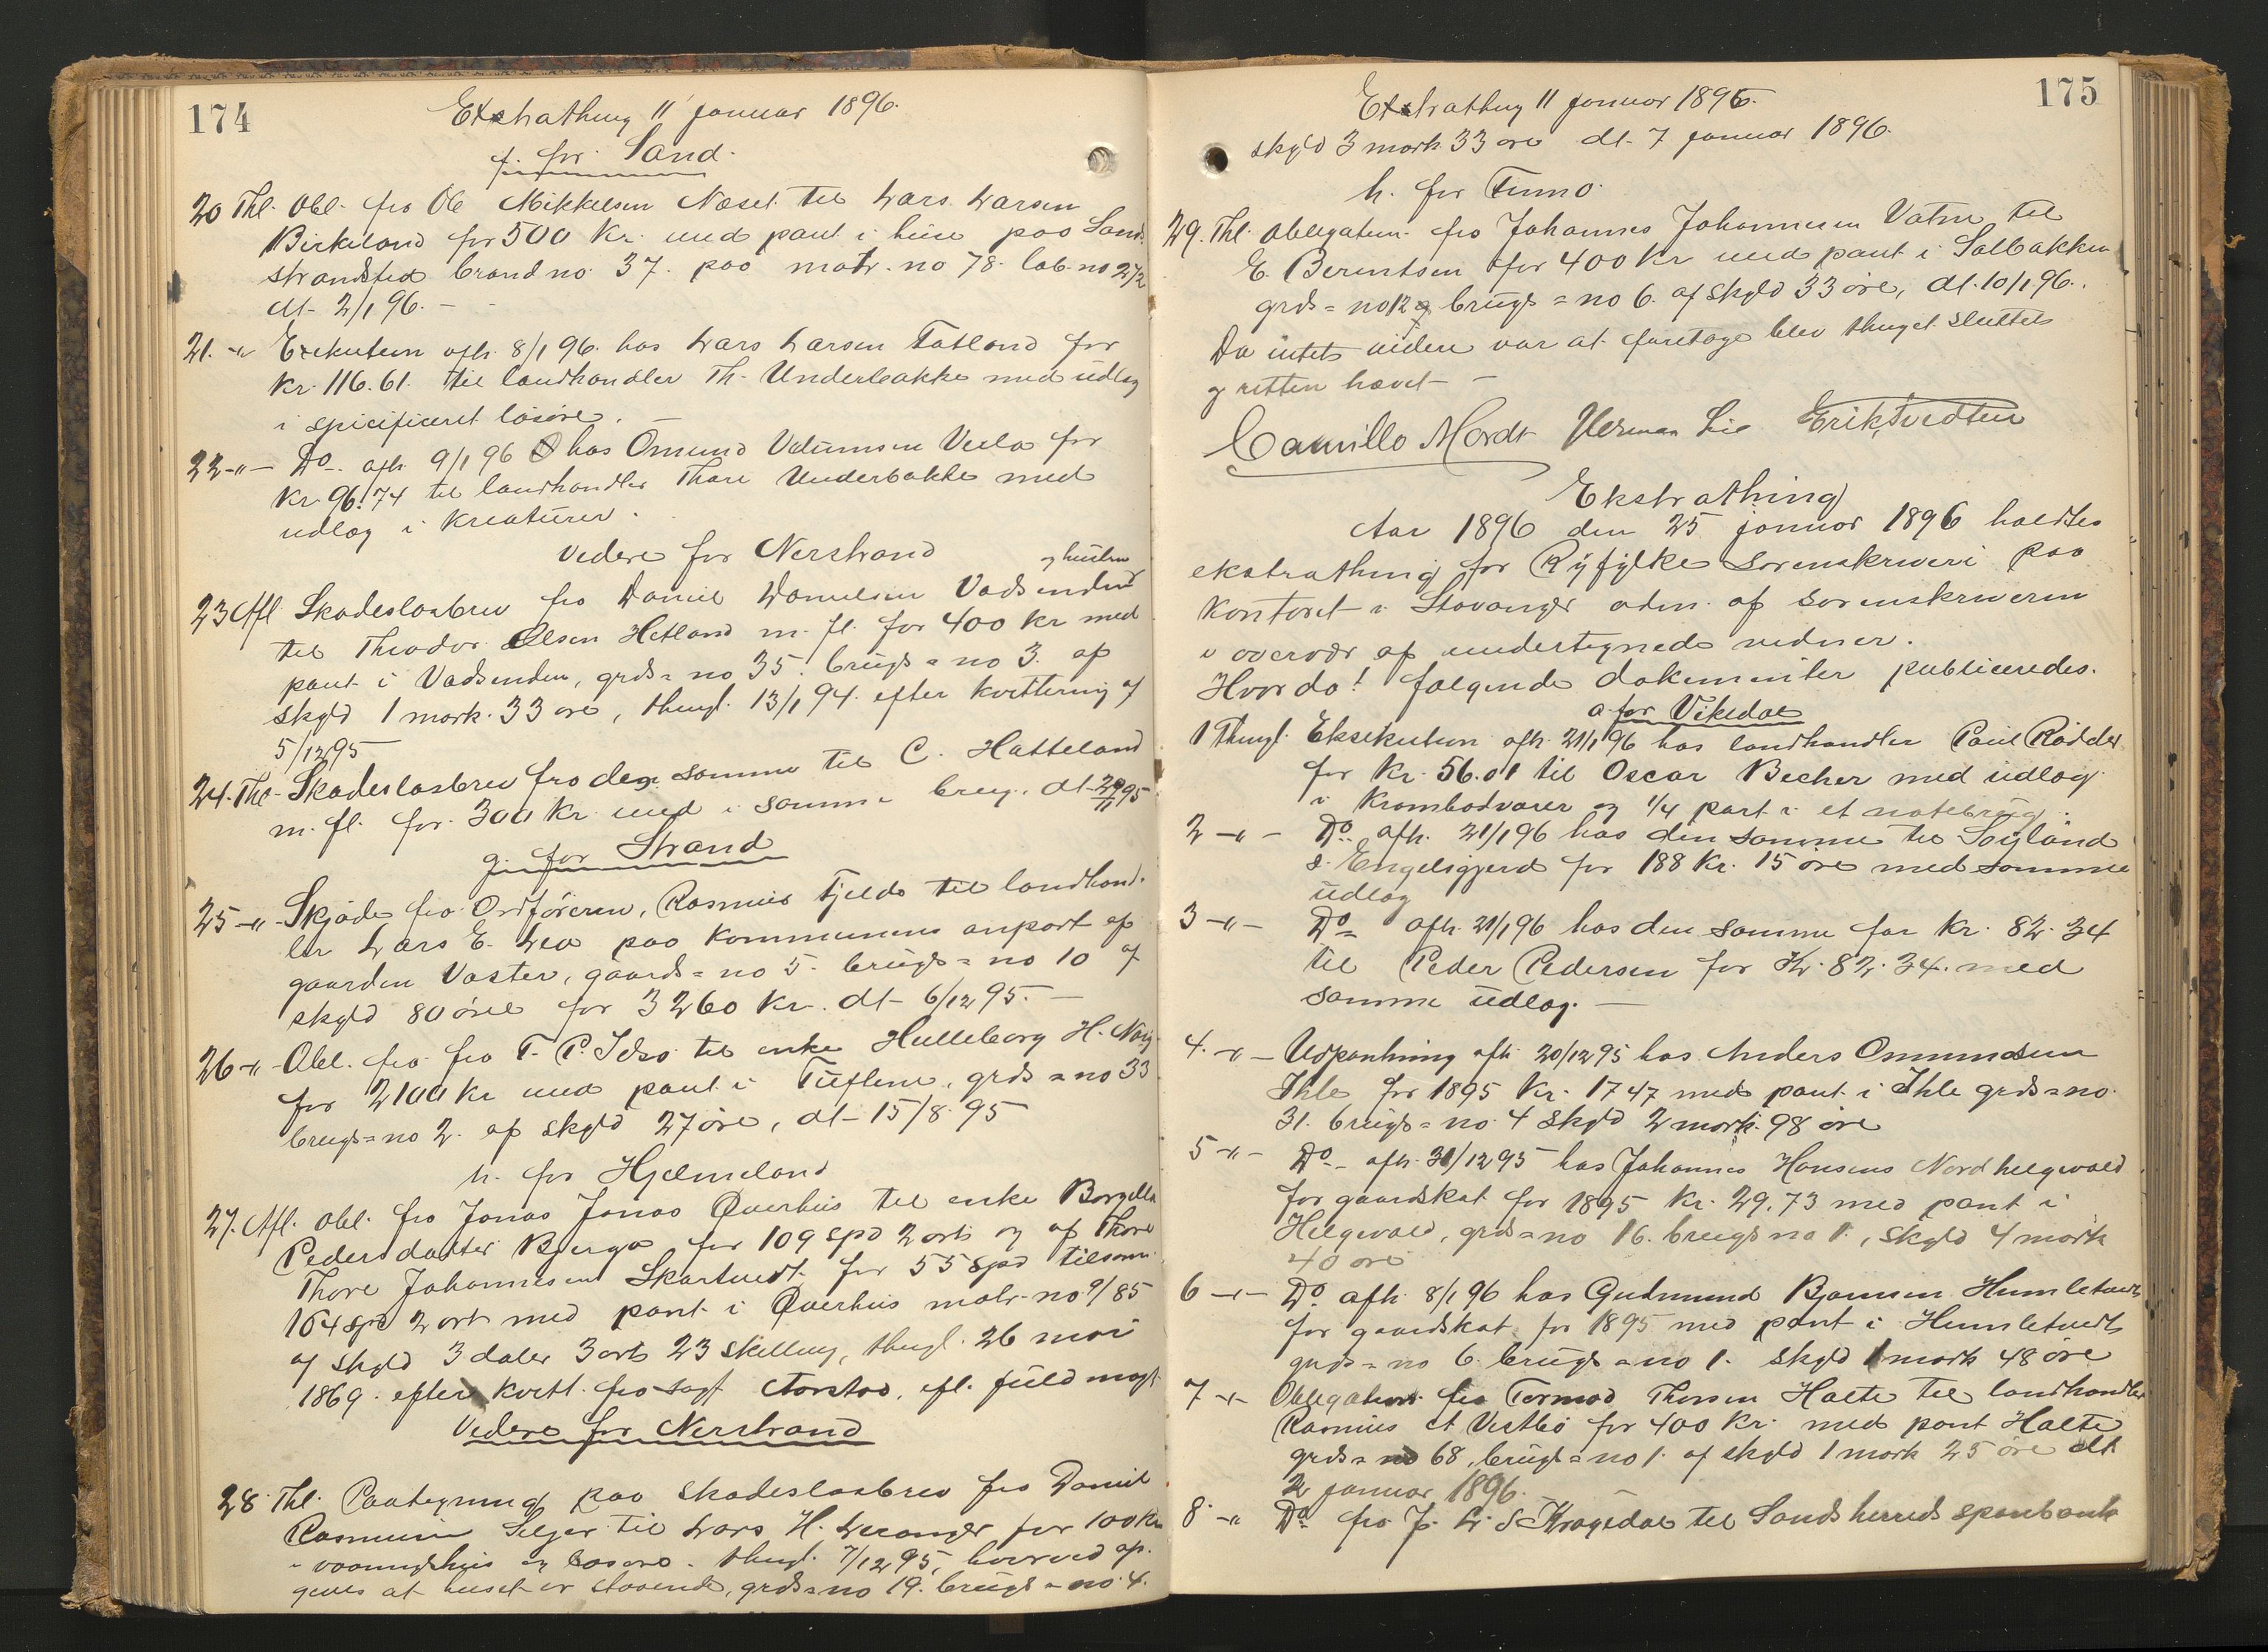 174
Extrathing 11 januar 1896.
f. for Sand.
20 Thl. Obl. fra Ole Mikkelsen Næset til Lars Larsen
Birkeland for 500 Kr. med pant i huse paa Sand
strandsted brand no. 37. paa matr. no 78. lab. no 272
dt. 2/1 96. -
21. -"- Exekution afh. 8/1 96. hos Lars Larsen Fatland for
Kr. 116.61. til landhandler Th. Underbakke med udlæg
i spicificeret løsøre. -
22 -"- Do. afh. 9/1 96 hos Omund for
Kr. 96.74 til landhandler Thore Underbakke med
udlæg i Kreaturer.
Videre for Nerstrand
og hustru
23 Afl Skadesløsbrev fra Daniel Danielsen Vadsenden
til Theodor Olsen Hetland m. fl. for 400 kr med
pant i Vadsenden, grds = no 35. brugs = no 3. af
skyld 1 mark. 33 øre, thingl. 13/1 94. efter kvittering af
5/12 95
24. Thl. Skadesløsbrev fra de samme til C. Hatteland
m. fl. for 300 Kr. med i samme brug. dt. 29/11 95
g. for Strand
25 -"- Skjøde fra Ordføreren, Rasmus Tjelde til landhand-
ler Lars E. Lea paa kommunens anpart af
gaarden Vaster, gaards = no 5. brugs = no 10 af
skyld 80 øre for 3260 kr. dt. 6/12 95. -
26 -"- Obl. fra fra T. P. Idsø til enke Helleborg H. Nag
for 2100 kr med pant i Tuftene, grds = no 33
brugs = no 2. af skyld 27 øre, dt. 15/8. 95
h. for Hjelmeland
27. Afl. obl. fra Jonas Jonas Qverhus til enke Borgilla
Pedersdatter Bjerga for 109 spd 2 ort og af Thore
Thore Johannesen Skartvedt for 55 spd tilsam.
164 spd 2 ort med pant i Qverhus matr. no 9/85
af skyld 3 daler 3 ort 23 skilling, thingl. 26 mai
1869. efter kvitt. fra sagf. Aarstad, efl. fuldmagt
Videre for Nerstrand
28. Thl. Paategning paa skadesløsbrev fra Daniel
Rasmusen til Lars H. for 100 Kr
i vaaningshus og løsøre. thingl. 7/12 95, hvorved op-
gives at huset er staaende, grds = no 19. brugs = no 4.
175
Extrathing 11 januar 1896.
skyld 3 mark 33 øre dt. 7 januar 1896.
h. for Finnø.
29. Thl. obligation fra Johannes Johannesen Vatne til
E. Berentsen for 400 Kr med pant i Solbakken
grds = no 12 og brugs = no 6. af skyld 33 øre, dt. 10/1 96.
Da intet videre var at foretage blev thinget sluttet
og retten hævet -
Camillo Mordt Herman Lie Erik Tvedten
Ekstrathing
Aar 1896 den 25 januar 1896 holdtes
ekstrathing for Ryfylke sorenskriveri paa
kontoret i Stavanger adm. af sorenskriveren
i overvær af undertegnede vidner.
Hvor da! følgende dokumenter publiceredes.
a. for Vikedal
1 Thingl. Eksekution afh. 21/1 96 hos landhandler Paul Rødder
for Kr. 56.01 til Oscar Becher med udlæg
i Krambodvarer og 1/4 part i et notebrug.
2 -"- Do. afh. 21/1 96 hos den samme til Søyland
& Engelsgjerd for 188 Kr. 15 øre med samme
udlæg
3 -"- Do afh. 21/1 96 hos den samme for Kr. 82.34
til Peder Pedersen for Kr. 82.34. med
samme udlæg. -
4. -"- Udpantning afh. 20/12 95 hos Anders Omundsen
Ihle for 1895 Kr. 17 47 med pant i Ihle grds = no.
31. brugs = no. 4 skyld 2 mark. 98 øre
5 -"- Do. afh. 31/12 95 hos Johannes Hansens Nordhelgevold
for gaardskat for 1895 Kr. 29.73 med pant i
Helgevold, grds = no 16. brugs no 1., skyld 4 mark
40 øre
6 -"- Do. afh. 8/1 96 hos Gudmund Bjørnsen Humletvedt
for gaardskat for 1895 med pant i Humletvedt
grds = no 6. brugs = no 1. skyld 1 mark 48 øre
7 -"- Obligation fra Tormod Thorsen Halte til landhandler
Rasmus A Vestbø for 400 Kr. med pant Halte
grds = no 68, brugs = no 1. af skyld 1 mark 25 øre dt
2 januar 1896.
8. -"- Do. fra J. L. S. Kragedal til Sands herreds sparebank